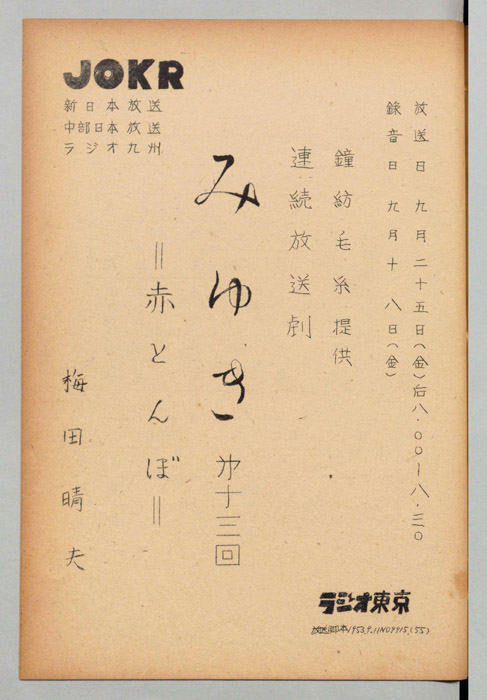 放送日 九月二十五日(金)后八・〇〇ー八・三〇
録音日 九月十八日(金)
鐘紡毛糸提供
連続放送劇
みゆき 㐧十三回
=赤とんぼ=
梅田晴夫
JOKR
新日本放送
中部日本放送
ラジオ九州
ラジオ東京
放送脚本1953.9.11NO9915.(55)